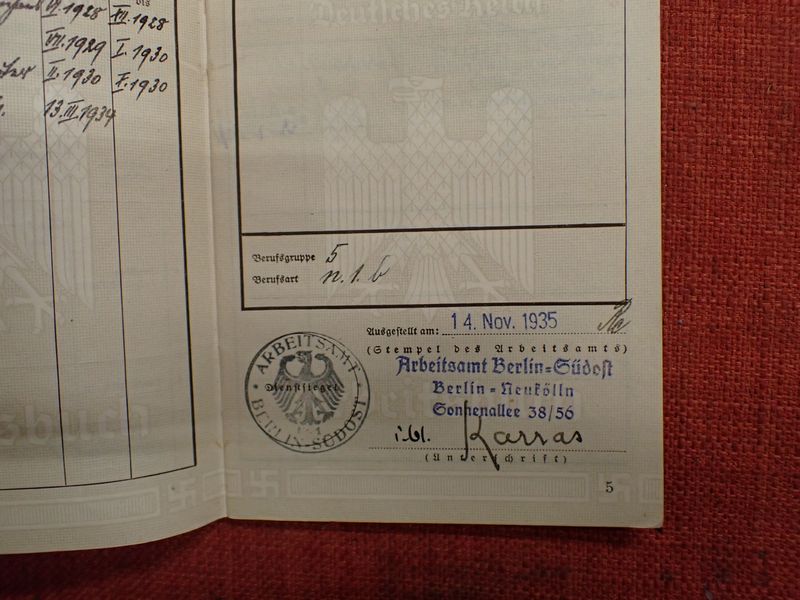 bis
VI.1928 XII.1928
VII.1929 I.1930
II.1930 V.1930
13.III.1934
Deutsches Reich
Berufsgruppe 5
Berufsart n.1.b
Ausgestellt am: 14. Nov. 1935
(Stempel des Arbeitsamts)
Arbeitsamt Berlin=Südost
Berlin=Neukölln
Sonnenallee 38/56
ARBEITSAMT
Dienstsiegel
BERLIN-SÜDOST
Karras
(Unterschrift)
5